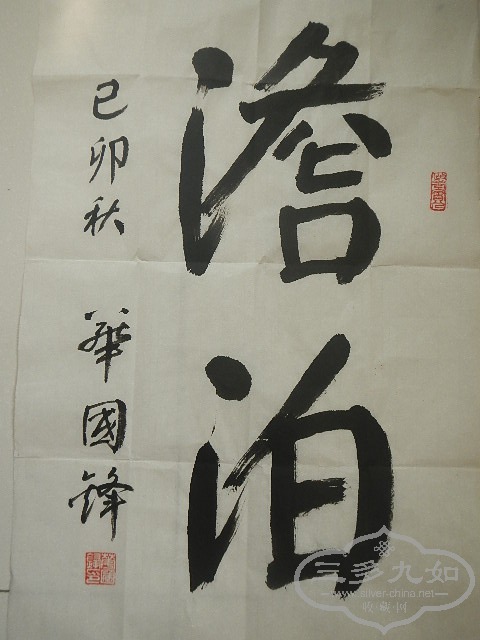 澹泊
己卯秋 華國鋒
三多九如
www.sliver-china.net
收藏网